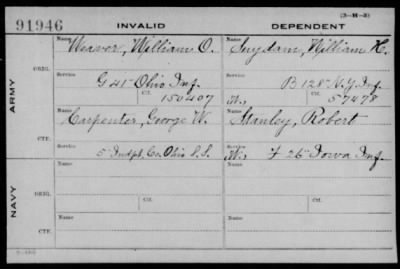 (3-H-3)
91946 INVALID DEPENDENT
Name Weaver, William O. Name Suydam, William H.
ARMY
ORIG.
Service G 41" Ohio Inf. Service B 128" N.Y. Inf.
Ctf. 150407 W. Ctf. 57478
CTF.
Name Carpenter, George W. Name Stanley, Robert
Service 5" Indpt. Co. Ohio S.S. Service W. F 26" Iowa Inf.
NAVY
ORIG.
Name Name
Service Ctf. Service Ctf.
CTF.
Name Name
Service Service